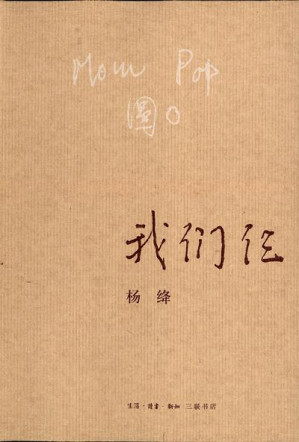 Mom Pop
圆O
我们仨
杨绛
生活·讀書·新知 三联书店